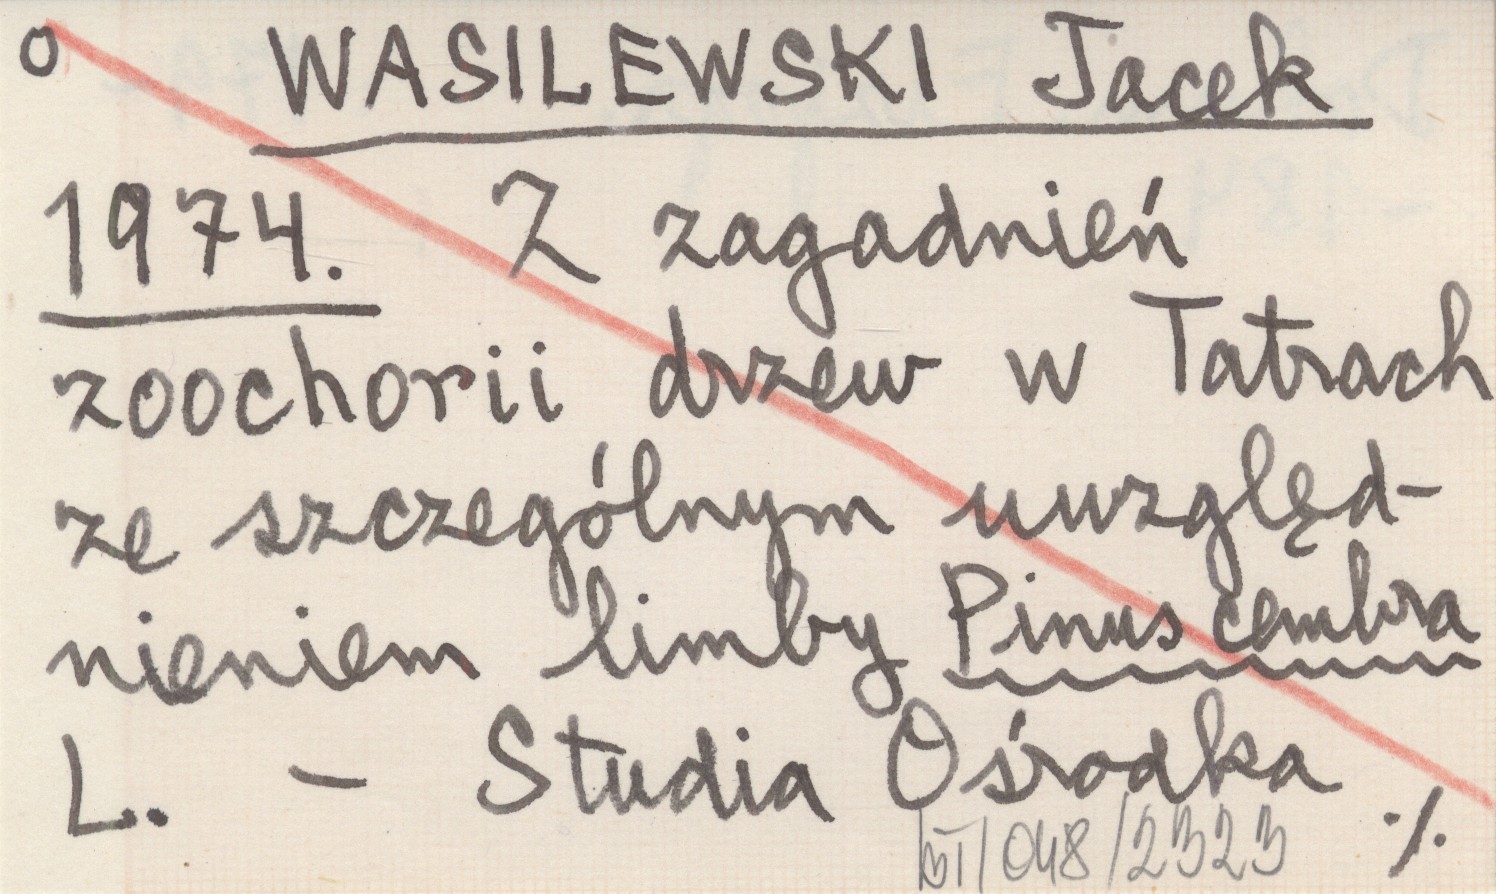 o WASILEWSKI Jacek
1974. Z zagadnień
zoochorii drzew w Tatrach
ze szczególnym uwzględ-
nieniem limby Pinus cembra
L. - Studia Ośrodka
BT/048/2323 ./.